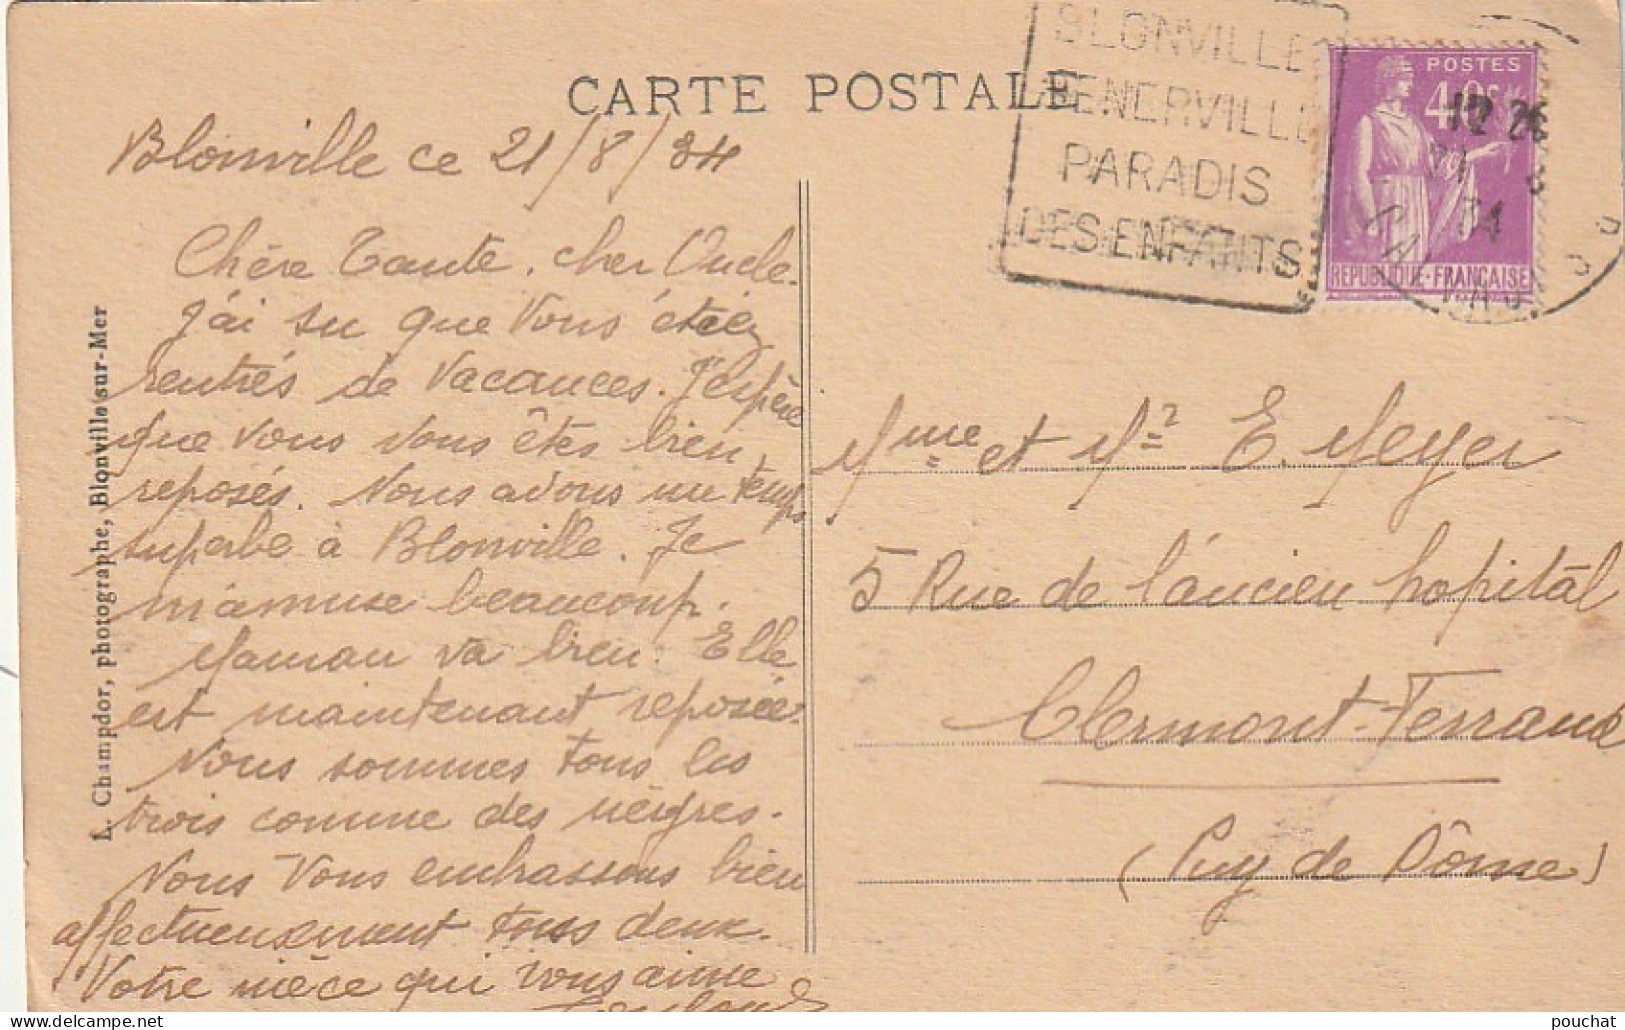 CARTE POSTALE
BLONVILLE
BENERVILLE
PARADIS
DES ENFANTS
POSTES
40c
REPUBLIQUE-FRANÇAISE
34
CALVADOS
Blonville ce 21/8/34
Chère Tante, cher Oncle.
J'ai su que Vous étiez
rentrés de Vacances. J'espère
que Vous Vous êtes bien
reposés. Nous avons un temps
superbe à Blonville. Je
m'amuse beaucoup.
Maman va bien. Elle
est maintenant reposée.
Nous sommes tous les
trois comme des nèigres.
Nous Vous embrassons bien
affectueusement tous deux.
Votre nièce qui vous aime
L. Champdor, photographe, Blonville-sur-Mer
Mme et Mr E. Meyer
5 Rue de l'áncien hopitàl
Clermont-Ferrand
(Puy de Dôme)
pouchat